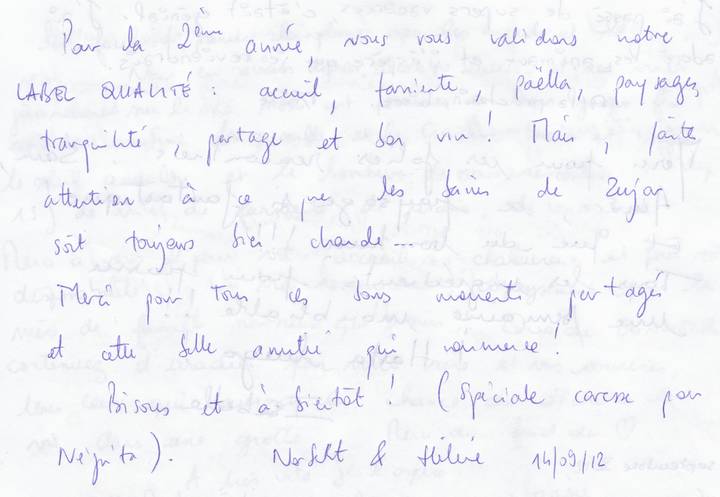 Pour la 2ème année, nous vous validons notre
LABEL QUALITÉ : accueil, farniente, paëlla, paysages,
tranquilité, partage et bon vin ! Mais, faite
attention à ce que les bains de Zujar
soit toujours bien chaude...
Merci pour tous ces bons moments partagés
et cette belle amitié qui commence !
Bisous et à bientôt ! (Spéciale caresse pour
Négrita). & Hélène 14/09/12